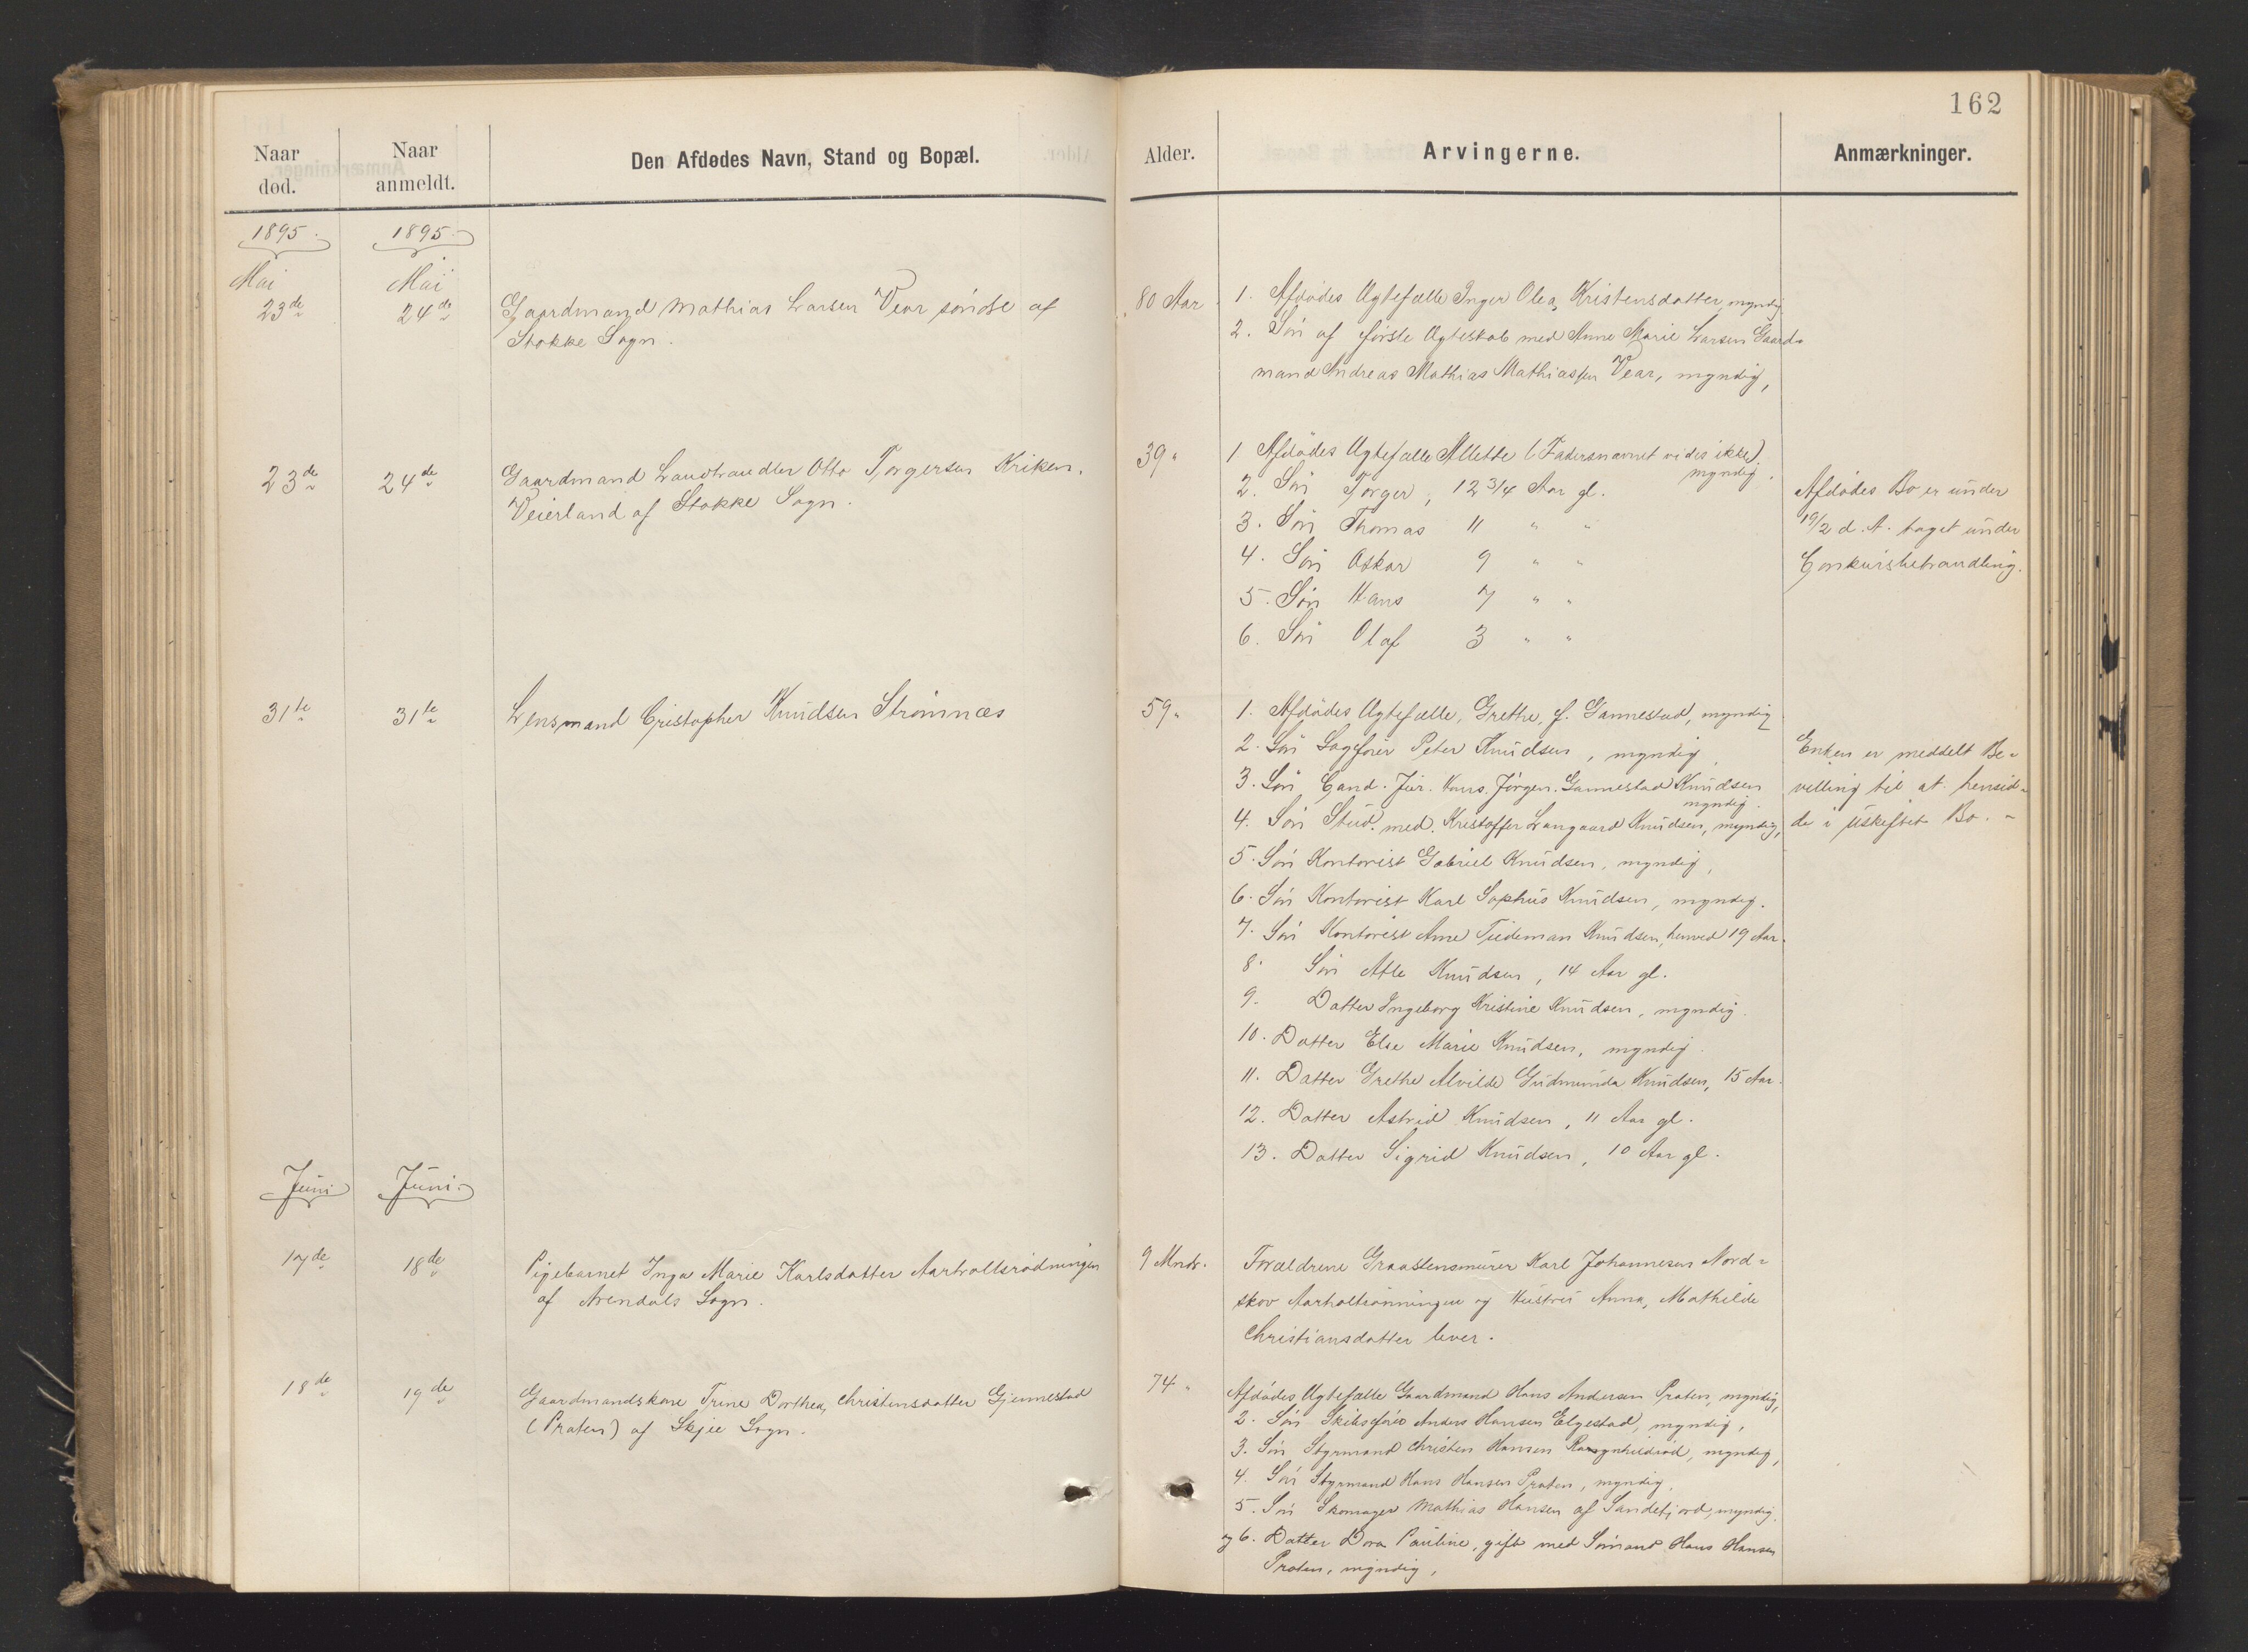 162
Naar død.
Naar anmeldt.
Den Afdødes Navn, Stand og Bopæl.
Alder.
Arvingerne.
Anmærkninger.
1895.
1895.
Mai
Mai
23de
24de
Gaardmand Mathias Larsen Vear søndre af
Stokke Sogn.
80 Aar
1. Afdødes Ægtefælle Inger Olea Kristensdatter, myndig
2. Søn af første Ægteskab med Anne Marie Larsen Gaard-
mand Andreas Mathias Mathiassen Vear, myndig,
23de
24de
Gaardmand Landhandler Otto Torgersen Kriken,
Veierland af Stokke Sogn.
39 "
1 Afdødes Ægtefælle Allette (Fadersnavnet vides ikke)
myndig.
2. Søn Torger, 12 3/4 Aar gl.
3. Søn Thomas 11 " "
4. Søn Oskar 9 " "
5. Søn Hans 7 " "
6. Søn Olaf 3 " "
Afdødes Bo er under
19/2 d. A. taget under
Conkursbehandling.
31te
31te
Lensmand Cristopher Knudsen Strømnæs
59 "
1. Afdødes Ægtefælle, Grethe, f. Gannestad, myndig
2. Søn Sagfører Peter Knudsen, myndig,
3. Søn Cand. Jur. Hans Jørgen Gannestad Knudsen
myndig.
4. Søn Stud. med. Kristoffer Langaard Knudsen, myndig,
5. Søn Kontorist Gabriel Knudsen, myndig,
6. Søn Kontorist Karl Sophus Knudsen, myndig.
7. Søn Kontorist Arne Tiedeman Knudsen, henved 19 Aar.
8. Søn Atle Knudsen, 14 Aar gl.
9. Datter Ingeborg Kristine Knudsen, myndig.
10. Datter Else Marie Knudsen, myndig.
11. Datter Grethe Alvilde Gudmunda Knudsen, 15 Aar.
12. Datter Astrid Knudsen, 11 Aar gl.
13. Datter Sigrid Knudsen, 10 Aar gl.
Enken er meddelt Be-
villing til at hensid-
de i uskiftet Bo. -
Juni
Juni.
17de
18de
Pigebarnet Inga Marie Karlsdatter Aarholtsrødningen
af Arendals Sogn.
9 Mndr.
Forældrene Graastensmurer Karl Johannesen Nord-
skov Aarholtrønningen og Hustru Anna Mathilde
Christiansdatter lever.
18de
19de
Gaardmandskone Trine Dorthea Christensdatter Gjennestad
(Praten) af Skjee Sogn.
74 "
Afdødes Ægtefælle Gaardmand Hans Andersen Praten, myndig,
2. Søn Skibsfører Anders Hansen Elgestad, myndig,
3. Søn Styrmand Christen Hansen Ragnhildrød, myndig,
4. Søn Styrmand Hans Hansen Praten, myndig,
5. Søn Skomager Mathias Hansen af Sandefjord, myndig,
og 6. Datter Dora Pauline, gift med Sømand Hans Hansen
Praten, myndig,